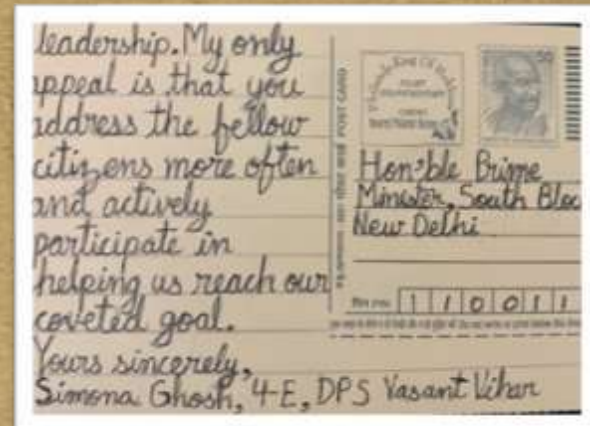 leadership. My only
appeal is that you
address the fellow
citizens more often
and actively
participate in
helping us reach our
coveted goal.
Yours sincerely,
Simona Ghosh, 4-E, DPS Vasant Vihar
POST CARD
50
Hon'ble Prime
Minister, South Bloc
New Delhi
पिन PIN
110011